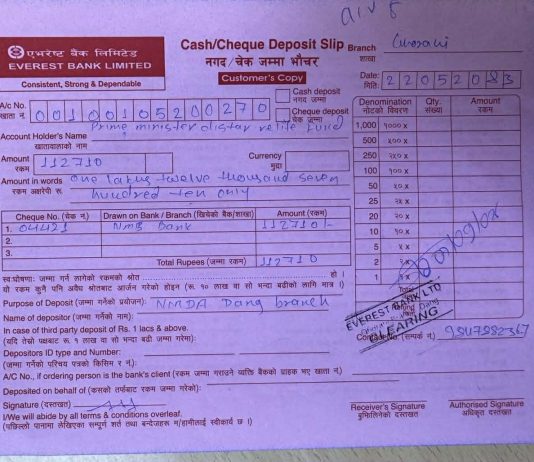 एभरेष्ट बैंक लिमिटेड
EVEREST BANK LIMITED
Consistent, Strong & Dependable
Cash/Cheque Deposit Slip
नगद / चेक जम्मा भौचर
Customer's Copy
Branch
शाखा
Date: 220520
मिति:
Cash deposit
नगद जम्मा
Cheque deposit
चेक जम्मा
A/c No. 00100105200270
खाता नं.
Account Holder's Name Prime minister
खातावालाको नाम
Amount 112710
रकम
Currency
मुद्रा
Amount in words one twelve thousand seven
रकम अक्षरेपी रू. hundred ten only
Cheque No. (चेक नं.) Drawn on Bank / Branch (खिचेको बैंक/शाखा) Amount (रकम)
1. 04421 NMB Bank 112710/-
2.
3.
Total Rupees (जम्मा रकम) 112710
Denomination Qty. Amount
नोटको विवरण संख्या रकम
1,000 १००० x
500 ५०० x
250 २५० x
100 १०० x
50 ५० x
25 २५ x
20 २० x
10 १० x
5 ५ x
2 २ x
1
स्वःघोषणाः जम्मा गर्न लागेको रकमको स्रोत हो ।
यो रकम कुनै पनि अवैध स्रोतबाट आर्जन गरेको होइन (रू. १० लाख वा सो भन्दा बढीको लागि मात्र ।)
Purpose of Deposit (जम्मा गर्नेको प्रयोजन): NMDA Dang branch
Name of depositor (जम्मा गर्नेको नाम):
In case of third party deposit of Rs. 1 lacs & above.
(यदि तेस्रो पक्षबाट रू. १ लाख वा सो भन्दा बढी जम्मा गरेमा)
Depositors ID type and Number:
(जम्मा गर्नेको परिचय पत्रको किसिम र नं.)
EVEREST BANK LTD
CLEARING
(सम्पर्क नं.) 9847982367
A/C No., if ordering person is the bank's client (रकम जम्मा गराउने व्यक्ति बैंकको ग्राहक भए खाता नं.)
Deposited on behalf of (कसको तर्फबाट रकम जम्मा गरेको):
Signature (दस्तखत)
I/We will abide by all terms & conditions overleaf.
(पछिल्लो पानामा लेखिएका सम्पूर्ण शर्त तथा बन्देजहरू म/हामीलाई स्वीकार्य छ ।)
Receiver's Signature
बुझिलिनेको दस्तखत
Authorised Signature
अधिकृत दस्तखत